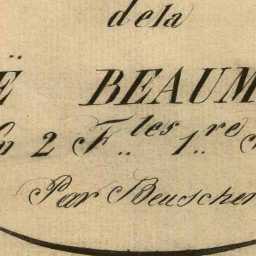 de la
Ë BEAUM
n 2 F.les 1.re
Par Beuscher